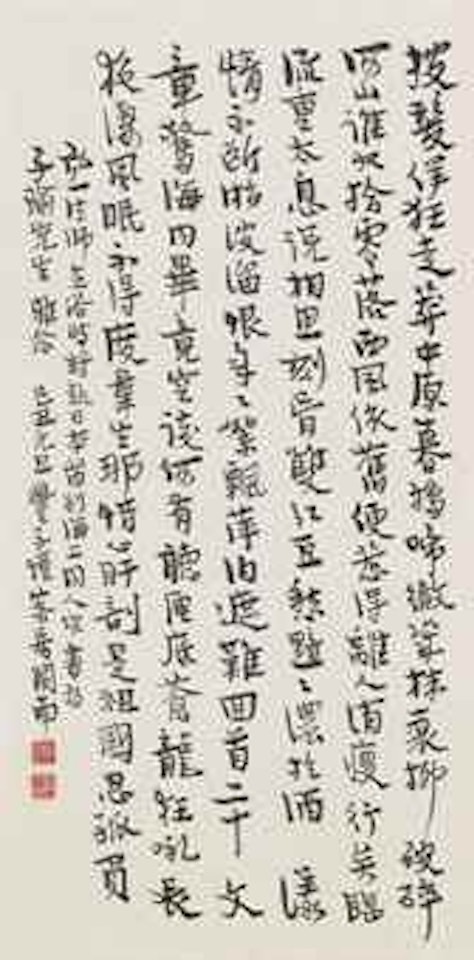 披髮佯狂走莽中原暮鴉啼徹幾株衰柳 破碎
河山誰收拾零落西風依舊便惹得離人消瘦行矣臨
流重太息說相思刻骨雙紅豆愁黯〻濃於酒 漾
情不斷淞波溜恨年〻絮飄萍泊遮難回首二十文
章驚海內畢竟空談何有聽匣底蒼龍狂吼長
夜淒風眠不得度羣生那惜心肝剖是祖國忍孤負
弘一法師在俗時將赴日本留別海上同人
子瑜先生雅 己丑元旦豐子愷客居閩南